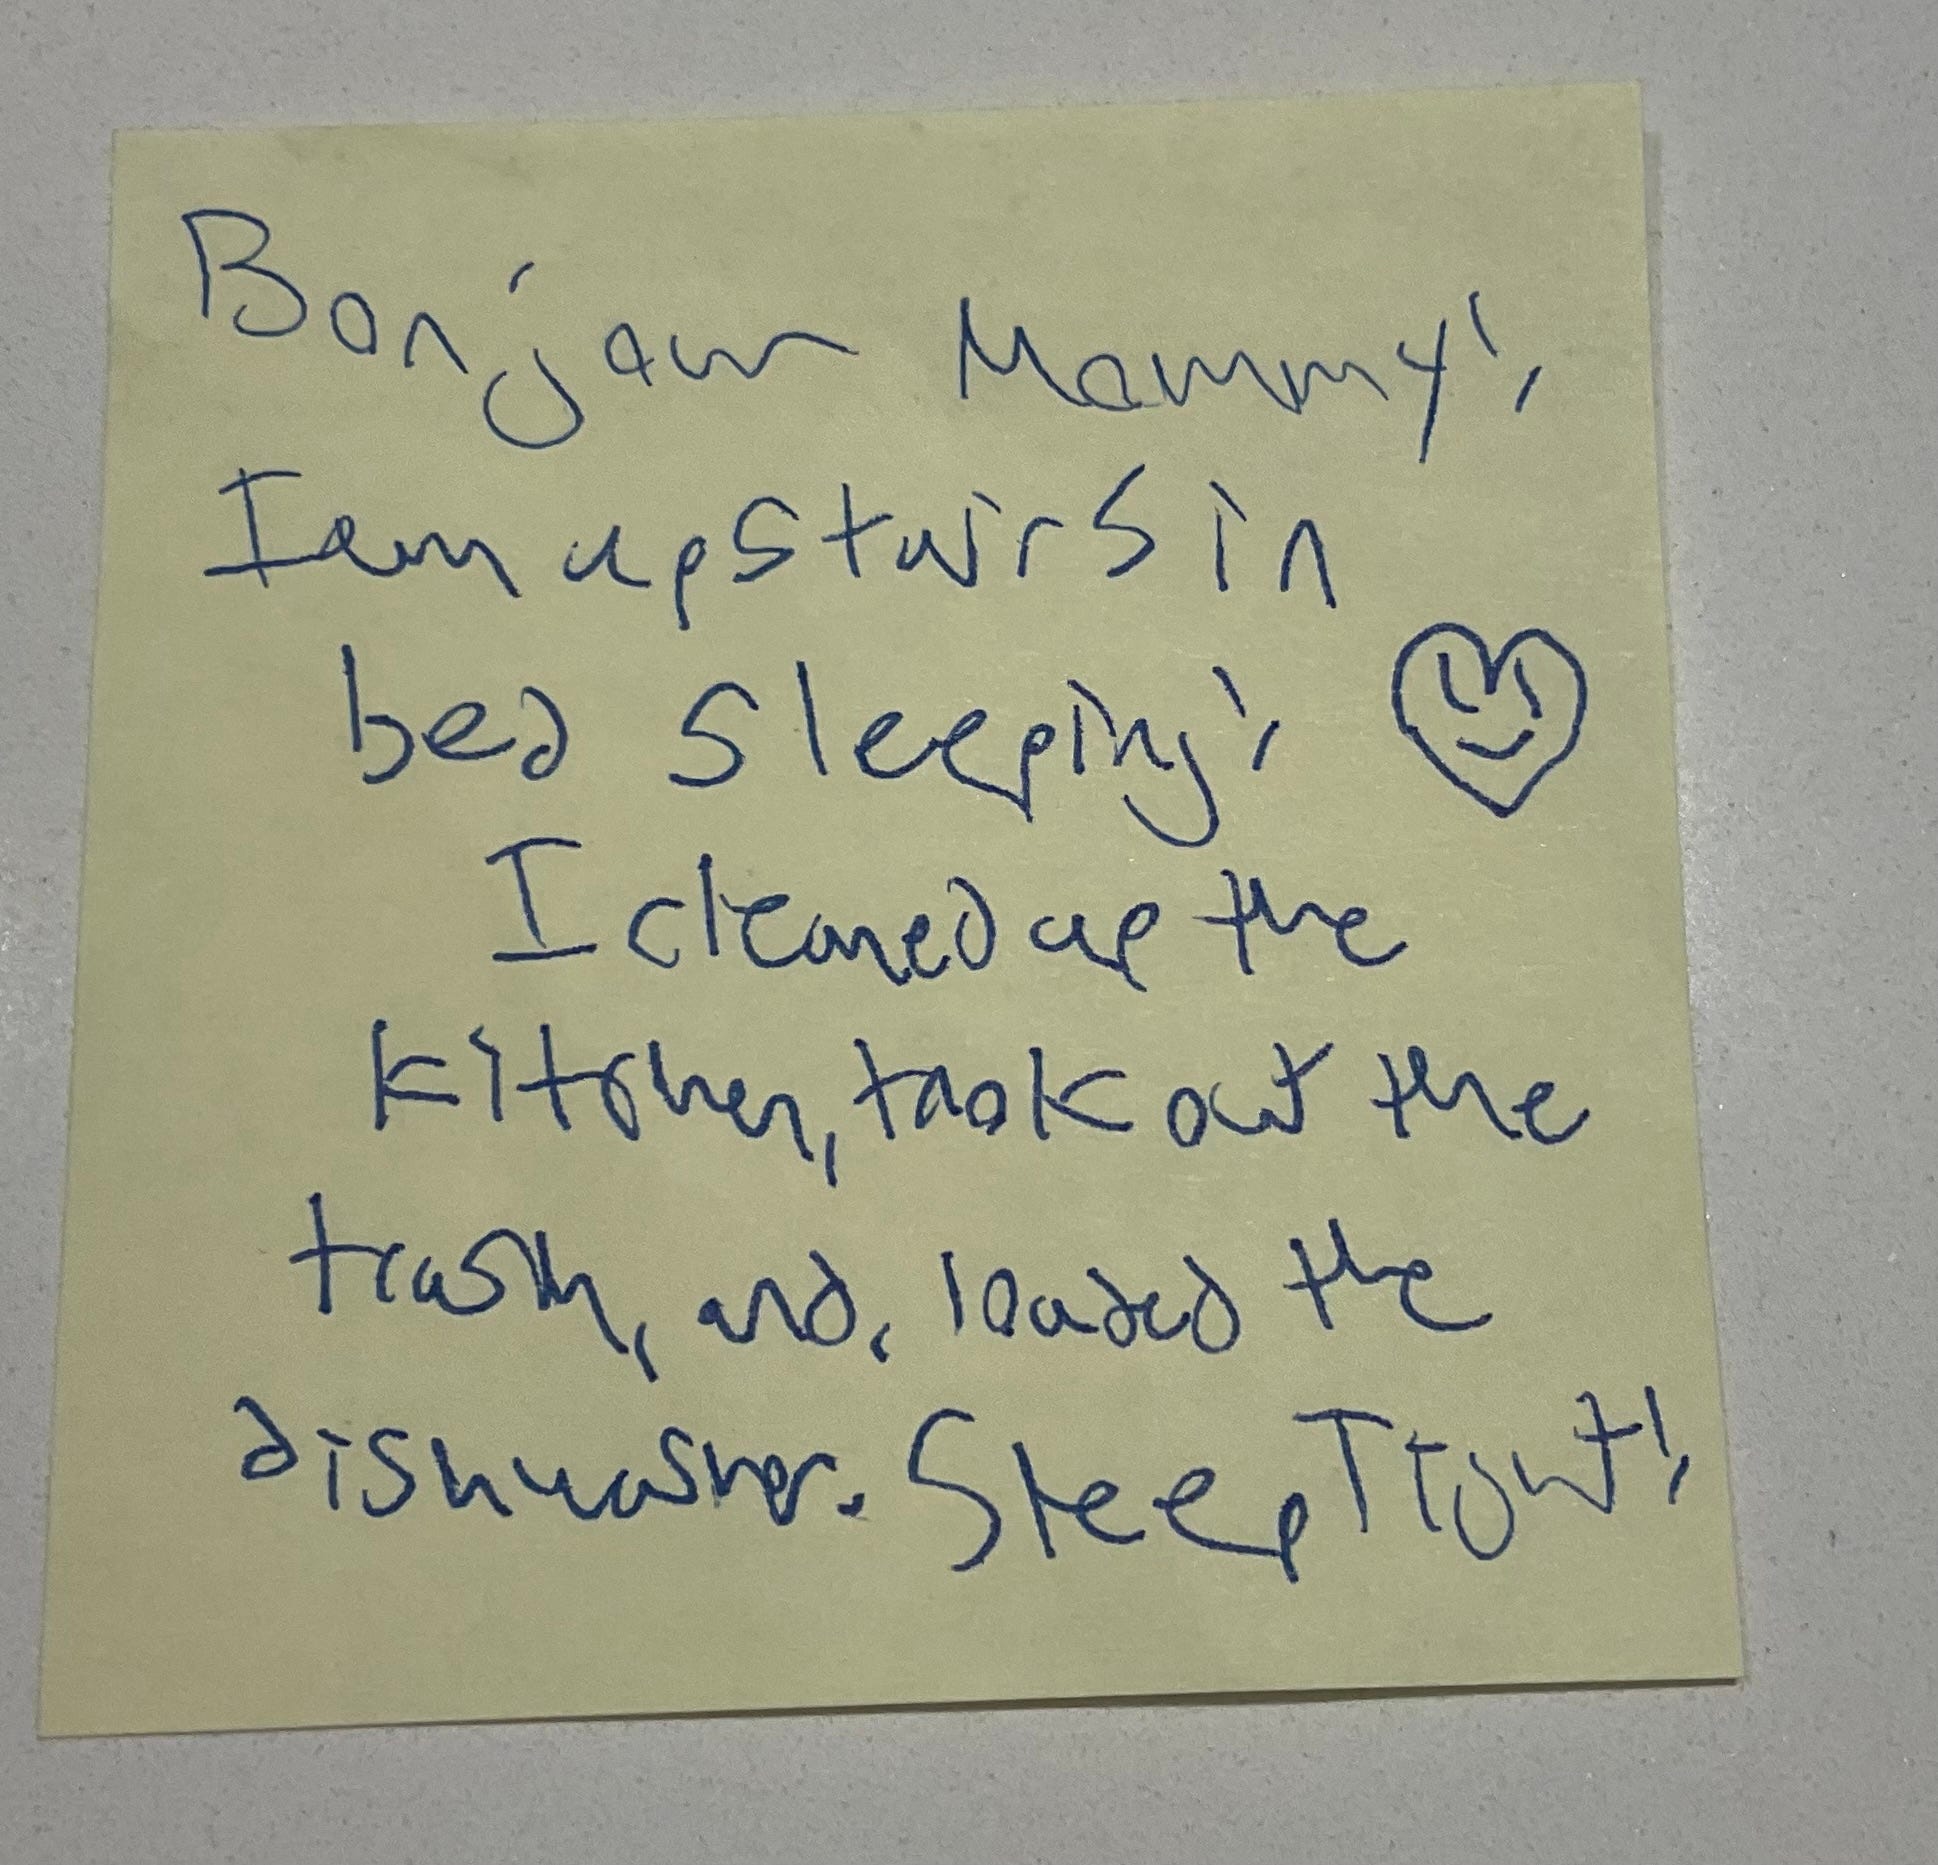 Bonjour Mommy!
I am upstairs in
bed sleeping!
I cleaned up the
kitchen, took out the
trash, and, loaded the
dishwasher. Sleep Tight!